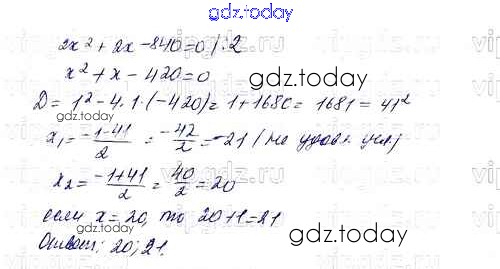 gdz.today
2x² + 2x - 840 = 0 / :2
x² + x - 420 = 0
gdz.today
D = 1² - 4·1·(-420) = 1 + 1680 = 1681 = 41²
x₁ = (-1-41)/2 = -42/2 = -21 (не удовл. усл)
x₂ = (-1+41)/2 = 40/2 = 20
gdz.today
если x = 20, то 20+1=21
Ответ: 20; 21.
gdz.today